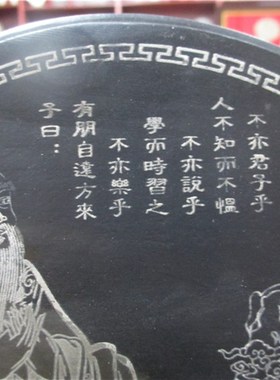 子曰：
有朋自遠方來
不亦樂乎
學而時習之
不亦說乎
人不知而不慍
不亦君子乎